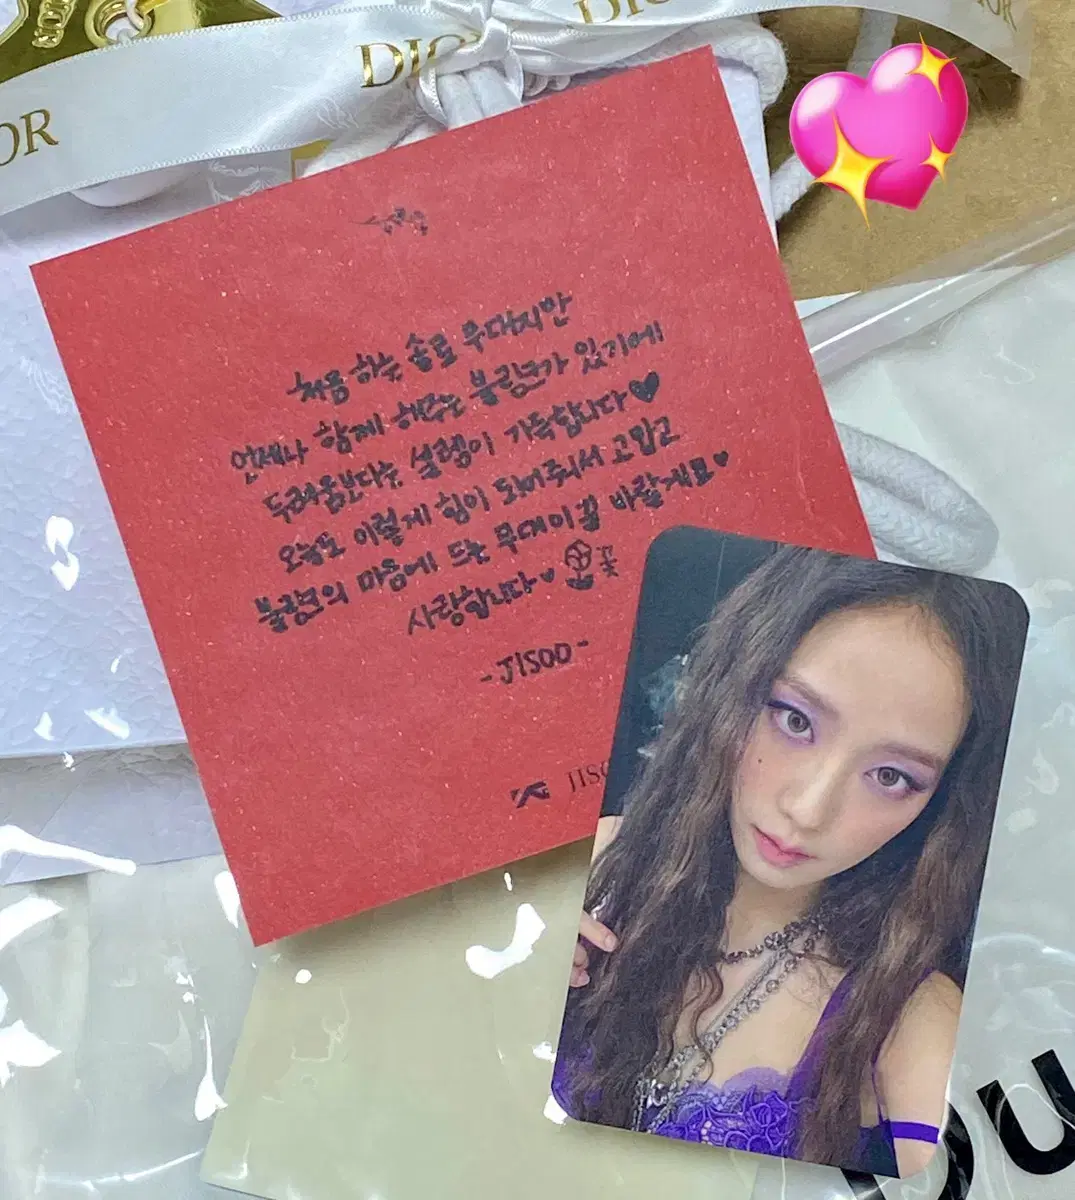 DIOR
DIOR
DIOR
IOR
처음 하는 솔로 무대지만
언제나 함께 해주는 블링크가 있기에
두려움보다는 설렘이 가득합니다♥
오늘도 이렇게 힘이 되어줘서 고맙고
블링크의 마음에 드는 무대이길 바랄게요♥
사랑합니다♥ 꽃
-JISOO-
YG JISO
OU